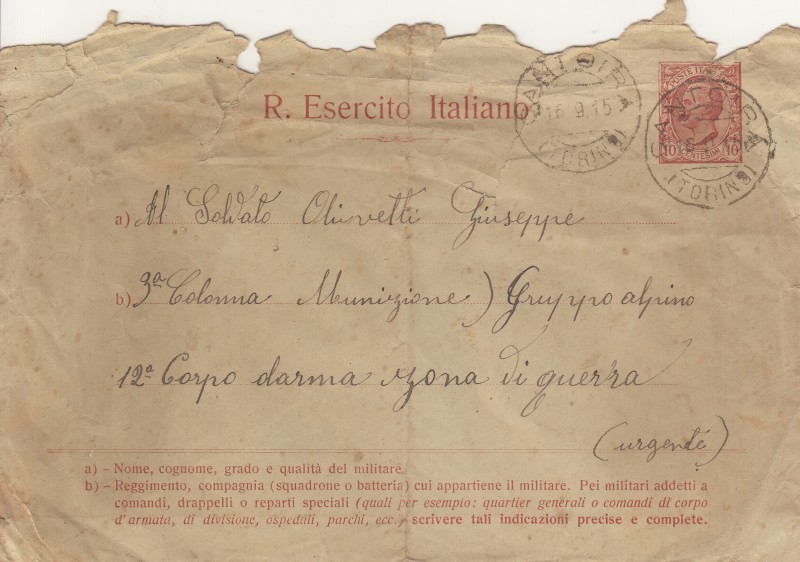 POSTE ITALIANE
10 CENTESIMI 10
R. Esercito Italiano
16 9.15
(TORINO)
(TORINO)
a) Al Soldato Olivetti Giuseppe
b) 3ª Colonna Munizione) Gruppo alpino
12ª Corpo darma zona di guerra
(urgente)
a) – Nome, cognome, grado e qualità del militare
b) – Reggimento, compagnia (squadrone o batteria) cui appartiene il militare. Pei militari addetti a
comandi, drappelli o reparti speciali (quali per esempio: quartier generali o comandi di corpo
d'armata, di divisione, ospedali, parchi, ecc.) scrivere tali indicazioni precise e complete.